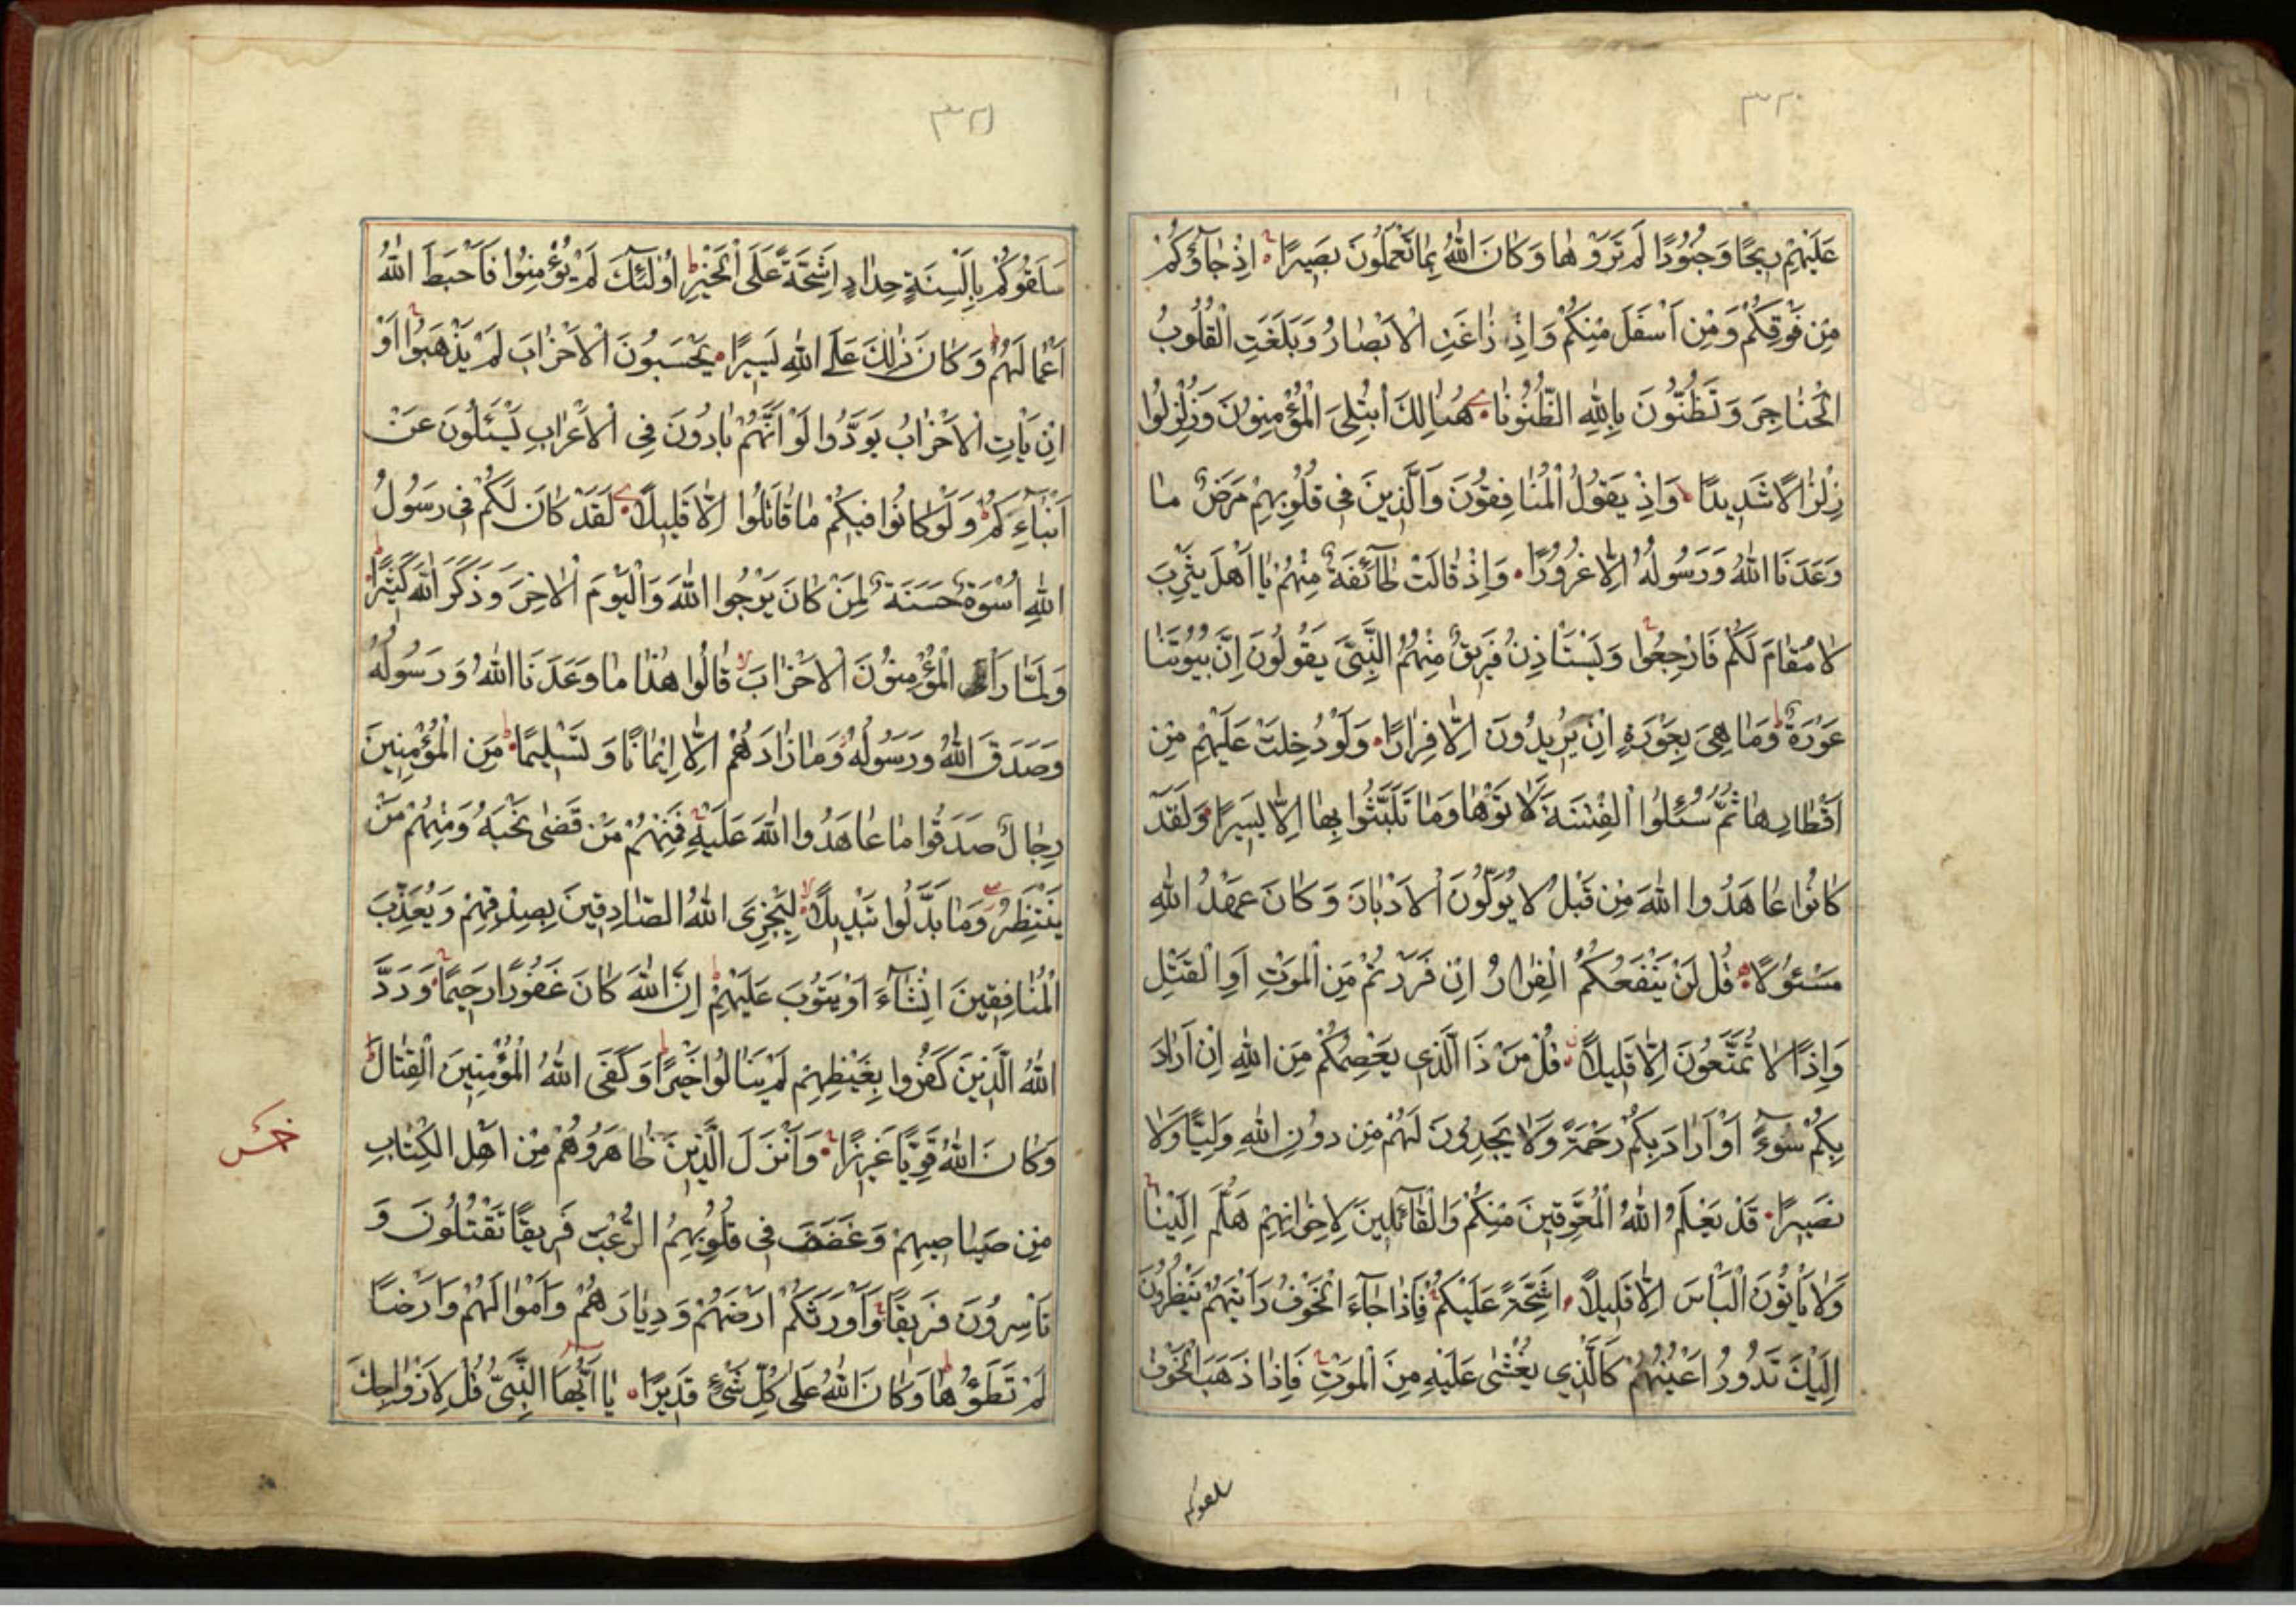 ٣٢٠
عَلَيْهِمْ رِيحًا وَجُنُودًا لَمْ تَرَوْهَا وَكَانَ اللهُ بِمَا تَعْمَلُونَ بَصِيرًا اِذْ جَآؤُكُمْ
مِنْ فَوْقِكُمْ وَمِنْ اَسْفَلَ مِنْكُمْ وَاِذْ زَاغَتِ الْاَبْصَارُ وَبَلَغَتِ الْقُلُوبُ
الْحَنَاجِرَ وَتَظُنُّونَ بِاللهِ الظُّنُونَا هُنَالِكَ ابْتُلِىَ الْمُؤْمِنُونَ وَزُلْزِلُوا
زِلْزَالًا شَدِيدًا وَاِذْ يَقُولُ الْمُنَافِقُونَ وَالَّذِينَ فِى قُلُوبِهِمْ مَرَضٌ مَا
وَعَدَنَا اللهُ وَرَسُولُهُ اِلَّا غُرُورًا وَاِذْ قَالَتْ طَآئِفَةٌ مِنْهُمْ يَا اَهْلَ يَثْرِبَ
لَا مُقَامَ لَكُمْ فَارْجِعُوا وَيَسْتَاْذِنُ فَرِيقٌ مِنْهُمُ النَّبِىَّ يَقُولُونَ اِنَّ بُيُوتَنَا
عَوْرَةٌ وَمَا هِىَ بِعَوْرَةٍ اِنْ يُرِيدُونَ اِلَّا فِرَارًا وَلَوْ دُخِلَتْ عَلَيْهِمْ مِنْ
اَقْطَارِهَا ثُمَّ سُئِلُوا الْفِتْنَةَ لَاٰتَوْهَا وَمَا تَلَبَّثُوا بِهَا اِلَّا يَسِيرًا وَلَقَدْ
كَانُوا عَاهَدُوا اللهَ مِنْ قَبْلُ لَا يُوَلُّونَ الْاَدْبَارَ وَكَانَ عَهْدُ اللهِ
مَسْئُولًا قُلْ لَنْ يَنْفَعَكُمُ الْفِرَارُ اِنْ فَرَرْتُمْ مِنَ الْمَوْتِ اَوِ الْقَتْلِ
وَاِذًا لَا تُمَتَّعُونَ اِلَّا قَلِيلًا قُلْ مَنْ ذَا الَّذِى يَعْصِمُكُمْ مِنَ اللهِ اِنْ اَرَادَ
بِكُمْ سُوءً اَوْ اَرَادَ بِكُمْ رَحْمَةً وَلَا يَجِدُونَ لَهُمْ مِنْ دُونِ اللهِ وَلِيًّا وَلَا
نَصِيرًا قَدْ يَعْلَمُ اللهُ الْمُعَوِّقِينَ مِنْكُمْ وَالْقَآئِلِينَ لِاِخْوَانِهِمْ هَلُمَّ اِلَيْنَا
وَلَا يَاْتُونَ الْبَاْسَ اِلَّا قَلِيلًا اَشِحَّةً عَلَيْكُمْ فَاِذَا جَآءَ الْخَوْفُ رَاَيْتَهُمْ يَنْظُرُونَ
اِلَيْكَ تَدُورُ اَعْيُنُهُمْ كَالَّذِى يُغْشٰى عَلَيْهِ مِنَ الْمَوْتِ فَاِذَا ذَهَبَ الْخَوْفُ
سلقوكم
٣٢١
سَلَقُوكُمْ بِاَلْسِنَةٍ حِدَادٍ اَشِحَّةً عَلَى الْخَيْرِ اُولٰئِكَ لَمْ يُؤْمِنُوا فَاَحْبَطَ اللهُ
اَعْمَالَهُمْ وَكَانَ ذٰلِكَ عَلَى اللهِ يَسِيرًا يَحْسَبُونَ الْاَحْزَابَ لَمْ يَذْهَبُوا اَوْ
اِنْ يَاْتِ الْاَحْزَابُ يَوَدُّوا لَوْ اَنَّهُمْ بَادُونَ فِى الْاَعْرَابِ يَسْئَلُونَ عَنْ
اَنْبَآءِكُمْ وَلَوْ كَانُوا فِيكُمْ مَا قَاتَلُوا اِلَّا قَلِيلًا لَقَدْ كَانَ لَكُمْ فِى رَسُولِ
اللهِ اُسْوَةٌ حَسَنَةٌ لِمَنْ كَانَ يَرْجُوا اللهَ وَالْيَوْمَ الْاٰخِرَ وَذَكَرَ اللهَ كَثِيرًا
وَلَمَّا رَاَ الْمُؤْمِنُونَ الْاَحْزَابَ قَالُوا هٰذَا مَا وَعَدَنَا اللهُ وَرَسُولُهُ
وَصَدَقَ اللهُ وَرَسُولُهُ وَمَا زَادَهُمْ اِلَّا اِيمَانًا وَتَسْلِيمًا مِنَ الْمُؤْمِنِينَ
رِجَالٌ صَدَقُوا مَا عَاهَدُوا اللهَ عَلَيْهِ فَمِنْهُمْ مَنْ قَضٰى نَحْبَهُ وَمِنْهُمْ مَنْ
يَنْتَظِرُ وَمَا بَدَّلُوا تَبْدِيلًا لِيَجْزِىَ اللهُ الصَّادِقِينَ بِصِدْقِهِمْ وَيُعَذِّبَ
الْمُنَافِقِينَ اِنْشَآءَ اَوْ يَتُوبَ عَلَيْهِمْ اِنَّ اللهَ كَانَ غَفُورًا رَحِيمًا وَرَدَّ
اللهُ الَّذِينَ كَفَرُوا بِغَيْظِهِمْ لَمْ يَنَالُوا خَيْرًا وَكَفَى اللهُ الْمُؤْمِنِينَ الْقِتَالَ
وَكَانَ اللهُ قَوِيًّا عَزِيزًا وَاَنْزَلَ الَّذِينَ ظَاهَرُوهُمْ مِنْ اَهْلِ الْكِتَابِ
مِنْ صَيَاصِيهِمْ وَقَذَفَ فِى قُلُوبِهِمُ الرُّعْبَ فَرِيقًا تَقْتُلُونَ وَ
تَاْسِرُونَ فَرِيقًا وَاَوْرَثَكُمْ اَرْضَهُمْ وَدِيَارَهُمْ وَاَمْوَالَهُمْ وَاَرْضًا
لَمْ تَطَؤُهَا وَكَانَ اللهُ عَلٰى كُلِّ شَىْءٍ قَدِيرًا يَا اَيُّهَا النَّبِىُّ قُلْ لِاَزْوَاجِكَ